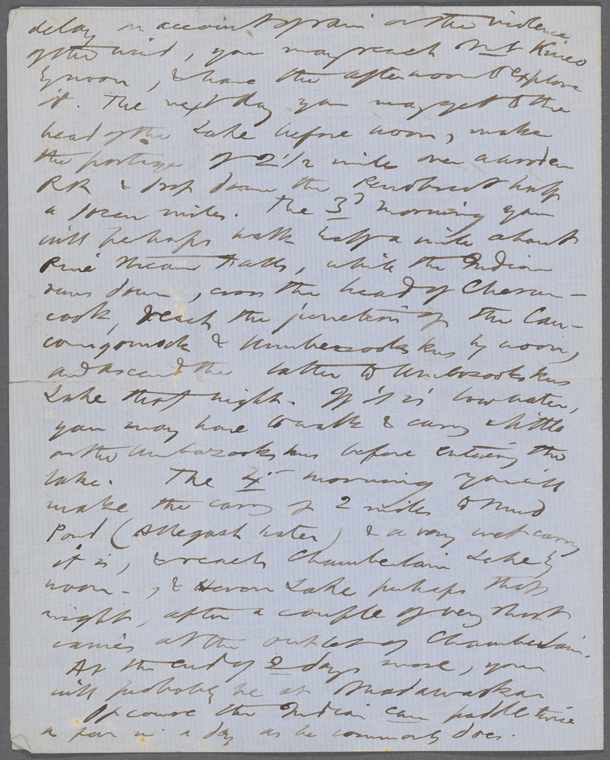 delay on account of rain or the violence
of the wind, you may reach Mt Kineo
by noon, & have the afternoon to explore
it. The next day you may get to the
head of the Lake before noon, make
the portage of 2 1/2 miles over a wooden
RR & drop down the Penobscot half
a dozen miles. The 3d morning you
will perhaps walk half a mile about
Pine Stream Falls, while the Indian
runs down, cross the head of Chesun-
cook, & reach the junction of the Cau-
comgomock & Umbazookskus by noon,
and ascend the latter to Umbazookskus
Lake that night. If it is low water,
you may have to walk & carry a little
on the Umbazookskus before entering the
lake. The 4th morning you will
make the carry of 2 miles to Mud
Pond (Allegash water) & a very wet carry
it is, & reach Chamberlain Lake by
noon—, & Heron Lake perhaps that
night, after a couple of very short
carries at the outlet of Chamberlain.
At the end of 2 days more, you
will probably be at Madawaska.
Of course the Indian can paddle twice
as far in a day as he commonly does.